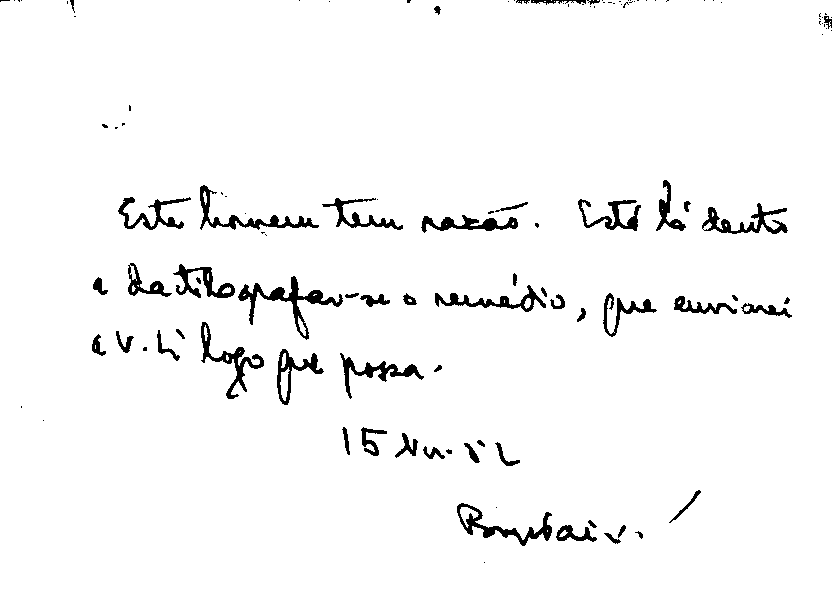 Este homem tem razão. Está lá dentro
a dactilografar-se o remédio, que enviarei
a V. logo que possa.
15 Nov.